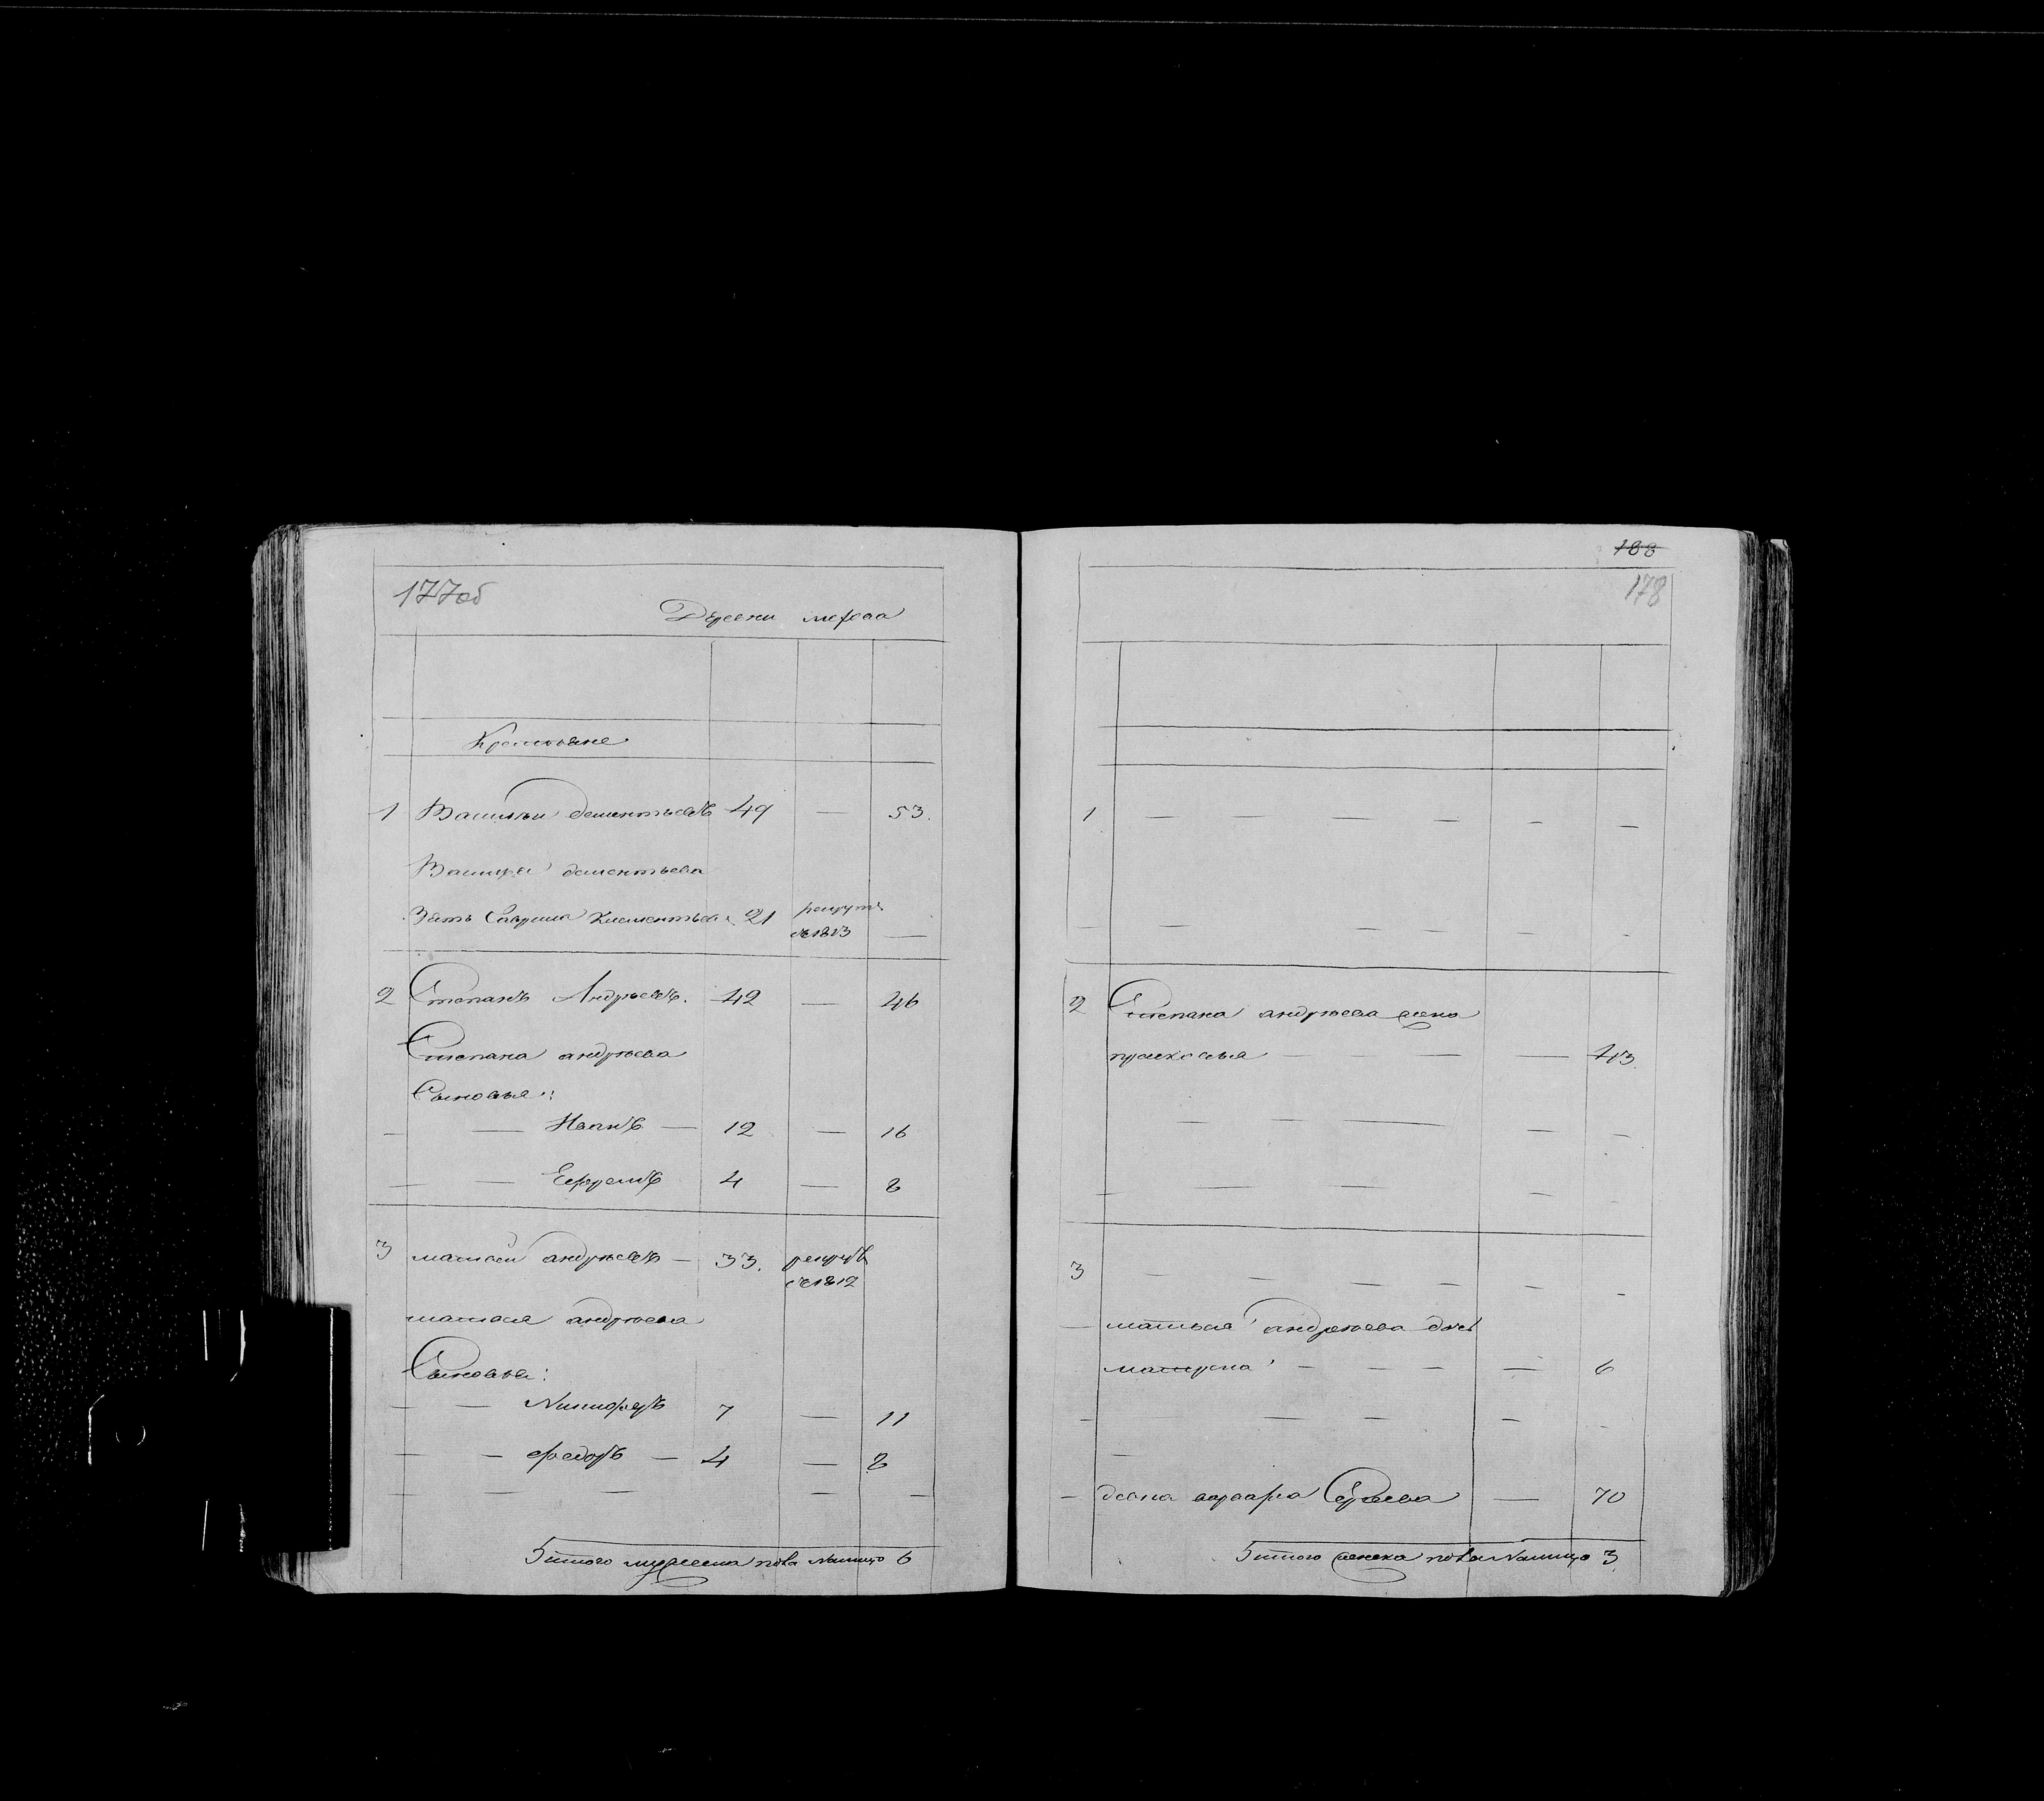 177об
Дѣревни
Крестьяне
1 Василеи дементьевъ 49 — 53.
Василья дементьева
Зять Гаврила Клементьев 21 рекрутъ —
въ 1813
2 Степанъ Андрѣевъ. 42 — 46
Степана андрѣева
Сыновья:
— — Иванъ — 12 — 16
— — Ефремъ 4 — 8
3 матвеи андрѣевъ — 33. рекрутъ
въ 1812
матвея андрѣева
Сыновья:
— — Никифоръ 7 — 11
— — федоръ — 4 — 8
— — — — —
Итого мужеска пола налицо 6
188
178
1 — — — — — —
— — — — — —
2 Степана андрѣева жена
прасковья — — — 43.
— — — — —
— — — — —
3 — — — — — —
— матвея андрѣева дочь
матрена — — — — 6
— — — — —
—
— девка варвара — 70
Итого женска пола налицо 3.